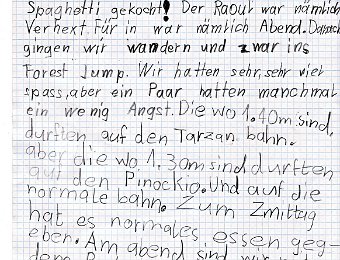 Spaghetti gekocht! Der Raoul war nämlich
Verhext. Für in war nämlich Abend. Danach
gingen wir wandern und zwar ins
Forest Jump. Wir hatten sehr, sehr viel
spass, aber ein Paar hatten manchmal
ein wenig Angst. Die wo 1.40m sind,
durften auf den Tarzan bahn.
aber die wo 1.30m sind durften
auf den Pinockio. Und auf die
normale bahn. Zum Zmittag
hat es normales essen geg-
eben. Am abend sind wir